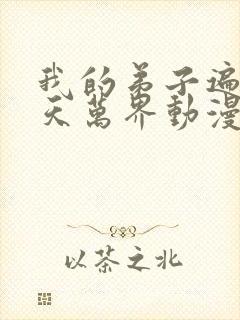 我的弟子遍
天萬界動漫
以茶之北